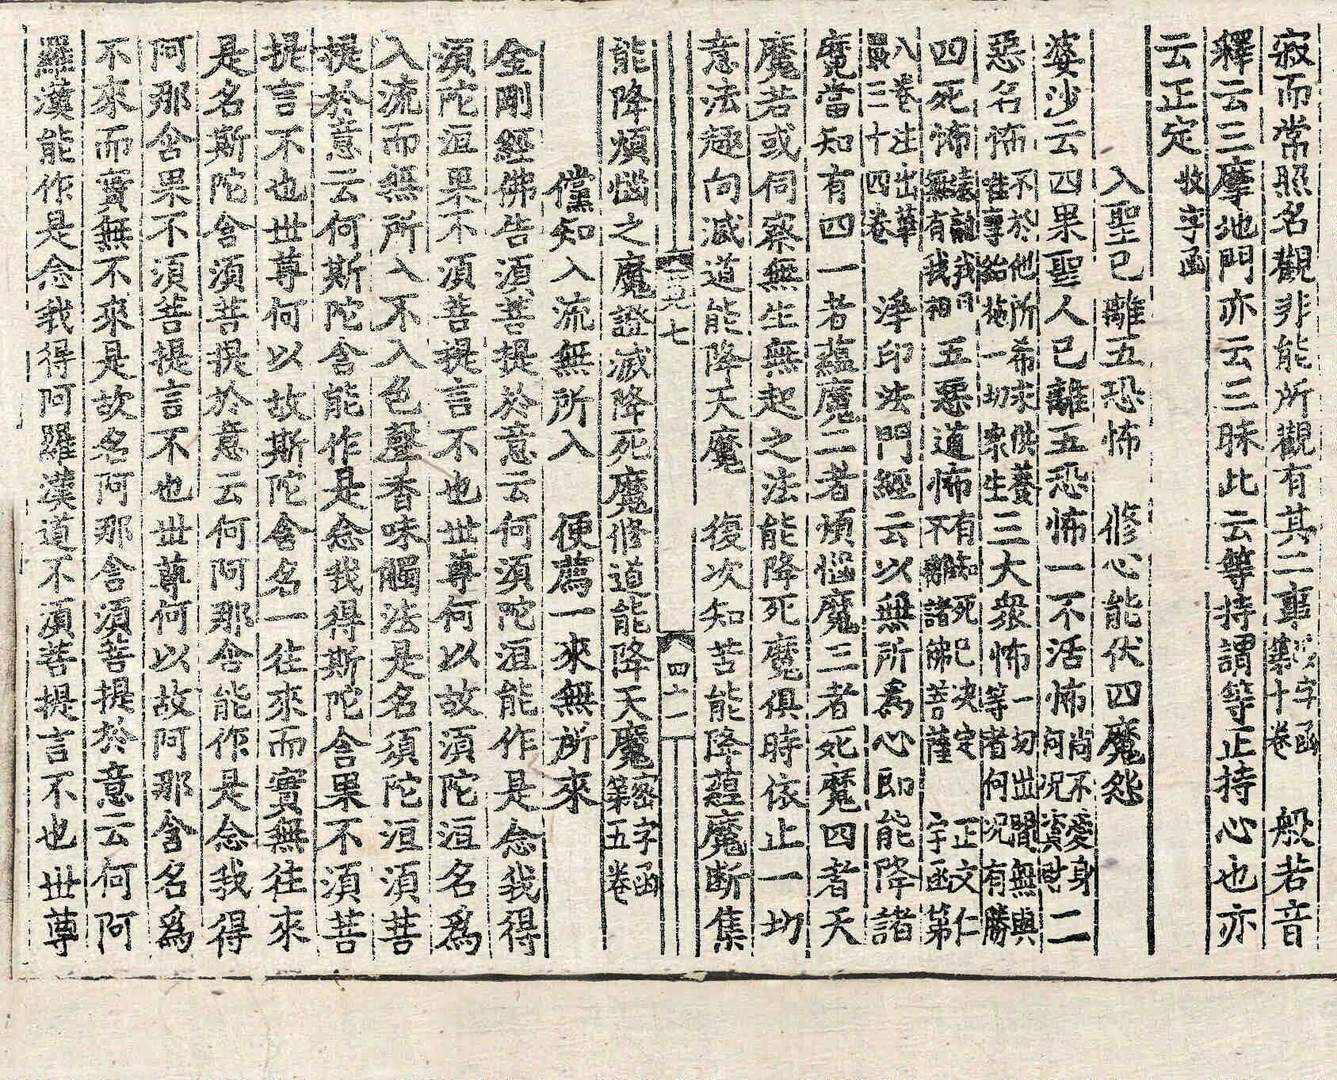 寂而常照名觀非能所觀有其二裏字函第十卷　般若音
釋云三摩地門亦云三昧此云等持謂等止持心也亦
云正定收字函
入聖已離五恐怖　修心能伏四魔怨
婆沙云四果聖人已離五恐怖一不活怖尚不愛身何况資世二
惡名怖不於他所希求供養唯專給施一切衆生三大衆怖一切世間無與等者何况有勝
四死怖遠離我見無有我相五惡道怖有知死已决定不離諸佛菩薩　正文仁字函第
八卷注出華嚴三十四卷　淨印法門經云以無所爲心即能降諸
魔當知有四一者蘊魔二者煩惱魔三者死魔四者天
魔若或伺察無生無起之法能降死魔俱時依止一切
意法趣向滅道能降天魔　復次知苦能降蘊魔斷集
七
四十一
能降煩惱之魔證滅降死魔修道能降天魔密字函第五卷
儻知入流無所入　便薦一來無所來
金剛經佛告須菩提於意云何須陀洹能作是念我得
須陀洹果不須菩提言不也世尊何以故須陀洹名爲
入流而無所入不入色聲香味觸法是名須陀洹須菩
提於意云何斯陀含能作是念我得斯陀含果不須菩
提言不也世尊何以故斯陀含名一往來而實無往來
是名斯陀含須菩提於意云何阿那含能作是念我得
阿那含果不須菩提言不也世尊何以故阿那含名爲
不來而實無不來是故名阿那含須菩提於意云何阿
羅漢能作是念我得阿羅漢道不須菩提言不也世尊